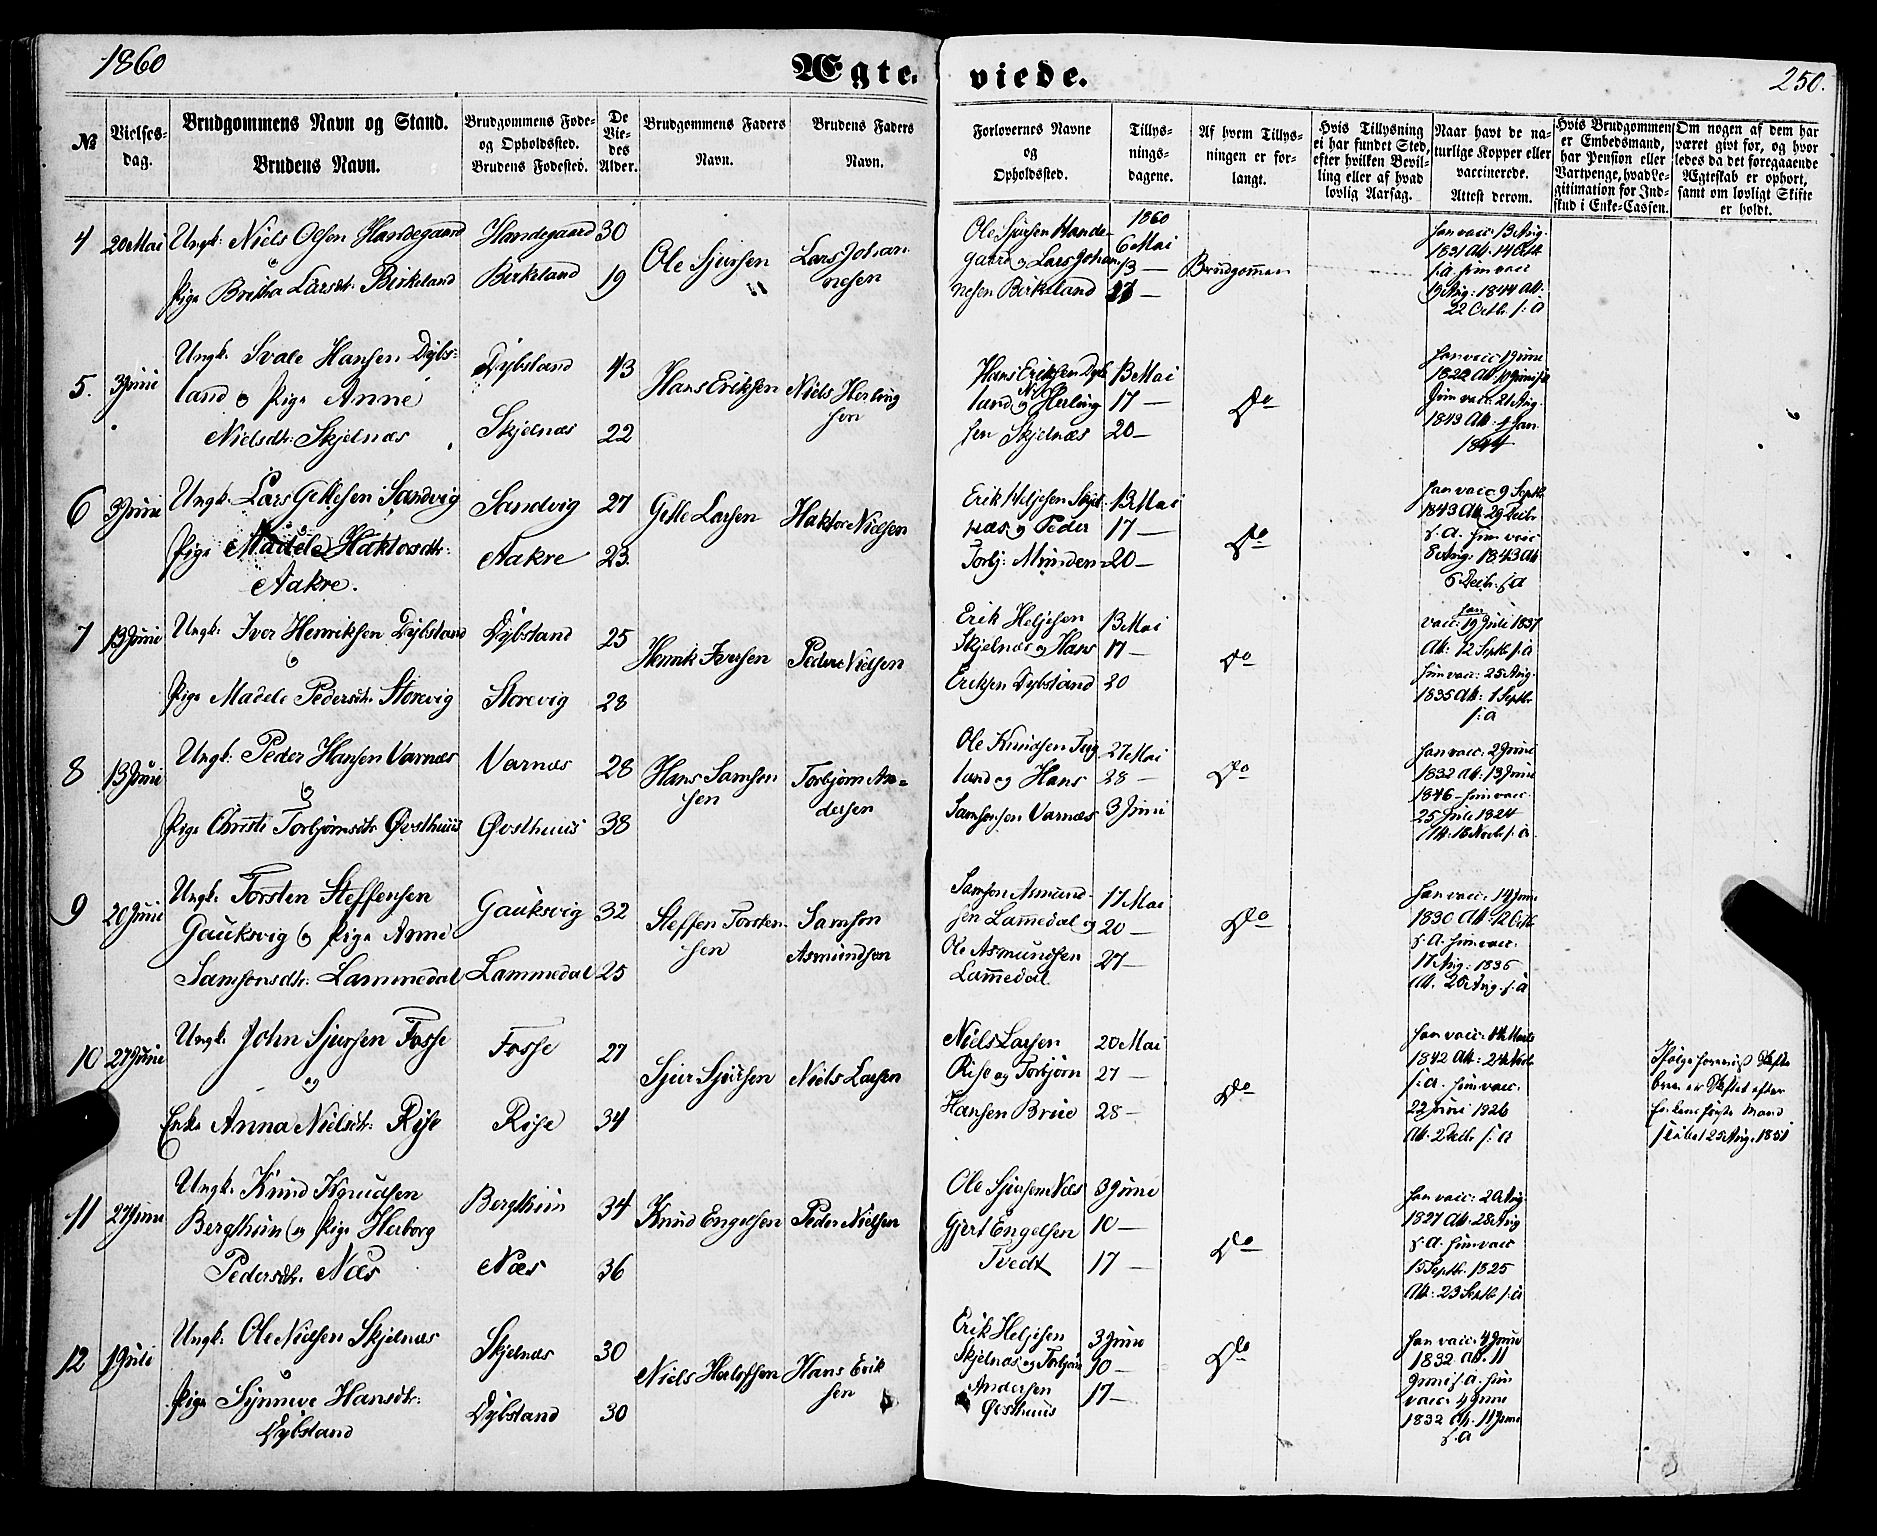 1860
Ægte-viede.
250.
№
Vielses-
dag.
Brudgommens Navn og Stand.
Brudens Navn.
Brudgommens Føde-
og Opholdssted.
Brudens Fødested.
De
Vie-
des
Alder.
Brudgommens Faders
Navn.
Brudens Faders
Navn.
Forlovernes Navne
og
Opholdssted.
Tillys-
nings-
dagene.
Af hvem Tillys-
ningen er for-
langt.
Hvis Tillysning
ei har fundet Sted,
efter hvilken Bevil-
ling eller af hvad
lovlig Aarsag.
Naar havt de na-
turlige Kopper eller
vaccinerede.
Attest derom.
Hvis Brudgommen
er Embedsmand,
har Pension eller
Vartpenge, hvad Le-
gitimation for Ind-
skud i Enke-Cassen.
Om nogen af dem har
været givt før, og hvor
ledes da det foregaaende
Ægteskab er ophørt,
samt om lovligt Skifte
er holdt.
4 20 Mai
Ungk. Niels Olsen Handegaard
og
Pige Britha Larsdt. Birkeland
Handegaard 30
Birkeland 19
Ole Sjursen
Lars Johan
nesen
Ole Sjursen Hande-
gaard og Lars Johan
nesen Birkeland
1860
6 Mai
13 —
17 —
Brudgommen
han vacc. 13 Aug.
1831 Att. 14 Octb.
s. a. hun vacc
19 Aug: 1844 Att.
22 Octb. s: a
5. 3 Juni
Ungk. Svale Hansen Dybs-
land og Pige Anne
Nielsdt. Skjelnæs
Dybsland 43
Skjelnæs 22
Hans Eriksen
Niels Herlług
sen
Hans Eriksen Dybs
land og Niels Herlüg
sen Skjelnæs
13 Mai
17 —
20 —
Do
han vacc 1 Juni
1822 Att. Juni s. a
hun vacc. 21 Aug.
1843 Att. 4 Jan.
1844
6 3 Juni
Ungk. Lars Gitlesen Sandvig
og
Pige Madele Haktorsdt.
Aakre.
Sandvig 27
Aakre 23.
Gitle Larsen
Haktor Nielsen
Erik Heljesen Skjel-
næs og Peder
Torbj: Munden
13 Mai
17 —
20 —
Do
han vacc 9 Septb.
1843 Att. 29 Decbr
s. a. hun vacc
8 Aug. 1843 Att
6 Decb. s. a
7 13 Juni
Ungk. Iver Henriksen Dybsland
og
Pige Madele Pedersdt. Storevig
Dybsland 25
Storevig 28
Henrik Iversen
Peder Nielsen
Erik Heljesen
Skjelnæs og Hans
Eriksen Dybsland
13 Mai
17 —
20
Do
han
vacc: 19 Juli 1837
Att: 12 Septb s: a
hun vacc: 25 Aug.
1835 Att: 1 Septbr
s: a
8 13 Juni
Ungk. Peder Hansen Varnæs
og
Pige Christi Torbjørnsdtr Øvsthuus
Varnæs 28
Øvsthuus 38
Hans Samson
sen
Torbjørn An-
dersen
Ole Knudsen Teig
land og Hans
Samsonsen Varnæs
27 Mai
28 —
3 Juni
Do
han vacc: 2 Juni
1832 Att: 13 Juni
1846 — hun vacc.
25 Juli 1824
Att: 18 Novb. s: a.
9 20 Juni
Ungk. Torsten Steffensen
Gauksvig og Pige Anne
Samsonsdt. Lammedal
Gauksvig 32
Lammedal 25
Steffen Torsten-
sen
Samson
Asmundsen
Samson Asmund-
sen Lammedal og
Ole Asmundsen
Lammedal
17 Mai
20 —
27 —
Do
han vacc: 14 Juni
1830 Att. 12 Octb
s. a. hun vacc.
17 Aug: 1836
Att. 26 Aug. s. a
10 27 Juni
Ungk. John Sjursen Fosse
og
Enke Anna Nielsdt. Rise
Fosse 27
Rise 34
Sjur Sjursen
Niels Larsen
Niels Larsen
Rise og Torbjørn
Hansen Brue
20 Mai
27 —
28 —
Do
han vacc: 14 Marts
1842 Att: 24 Novb.
s. a. hun vacc.
22 Juni 1826
Att. 2 Decb s: a
Ifølge forevist Skifte
brev er Skiftet efter
hendes første Mand
sluttet 25 Aug. 1851
11 27 Juni
Ungk. Knud Knudsen
Bergthun og Pige Herborg
Pedersdt. Næs
Bergthun 34
Næs 36
Knud Engelsen
Peder Nielsen
Ole Sjursen Næs
Gjert Engelsen
Tvedt
3 Juni
10 —
17 —
Do
han vacc: 20 Aug.
1827 Att: 28 Aug
s. a. hun vacc
15 Septb. 1825
Att: 23 Septb s: a
12 1 Juli
Ungk: Ole Nielsen Skjelnæs
og
Pige Synneve Hansdtr:
Dybsland
Skjelnæs 30
Dybsland 30
Niels Herlofsen
Hans Erik
sen
Erik Heljesen
Skjelnæs og Torbjørn
Andersen
Øvsthuus
3 Juni
10 —
17 —
Do
han vacc: 4 Juni
1832 Att. 11
Juni s. a. hun
vacc. 4 Juni
1832 Att. 11 Juni
s. a